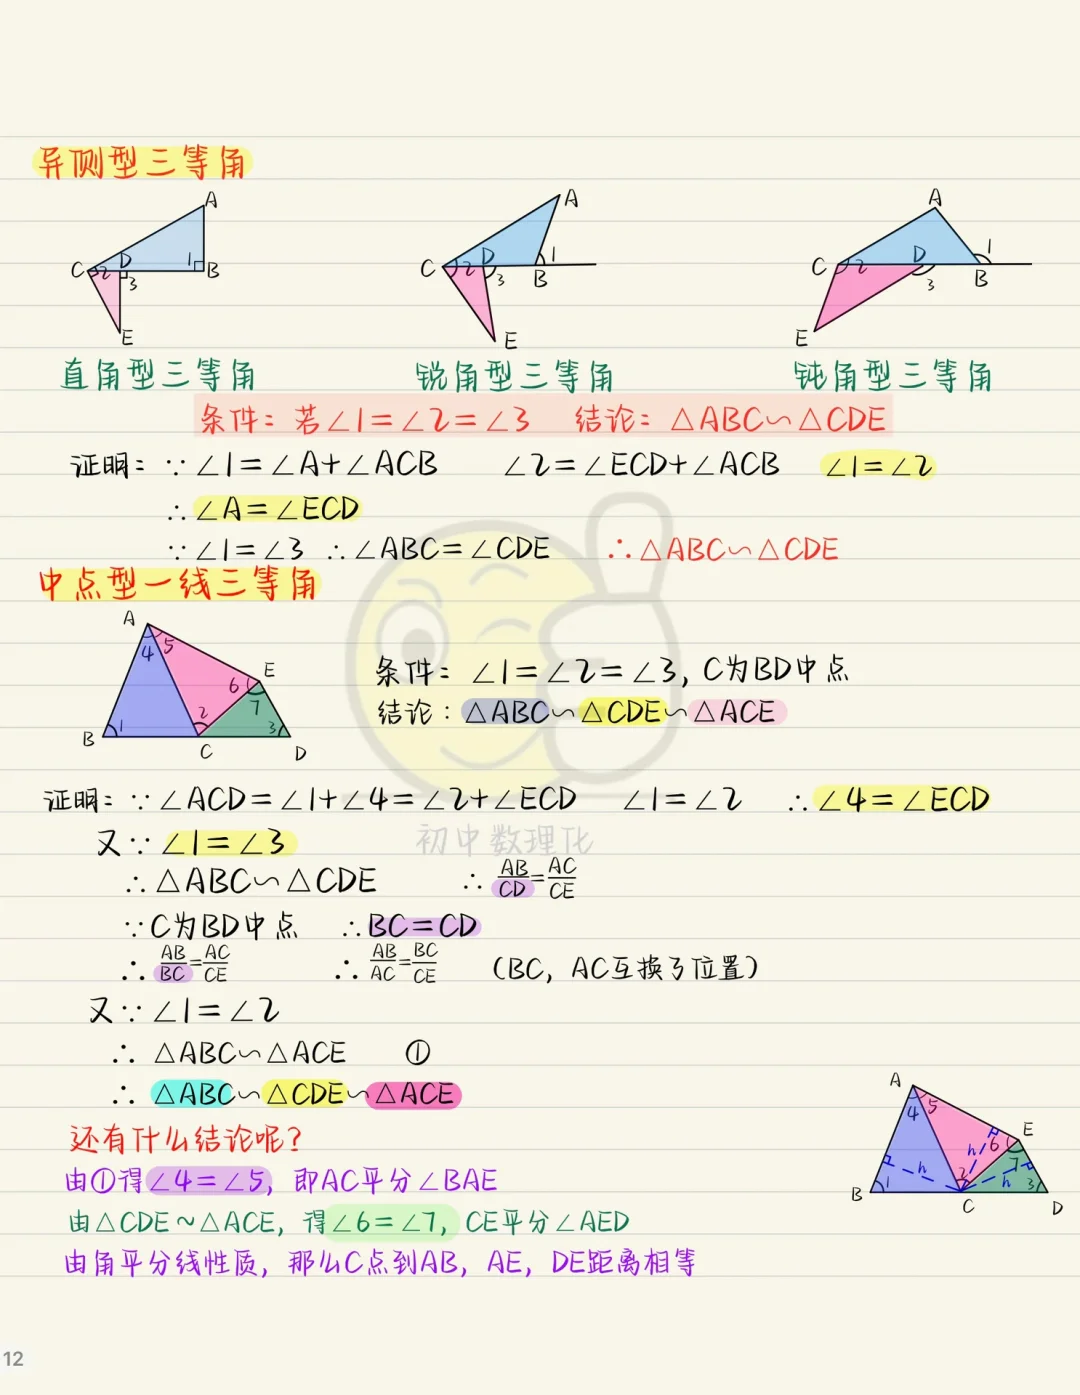 异侧型三等角
A A A
C 2 D 1 B 3 C 2 D 3 1 B C 2 D 3 1 B
E E E
直角型三等角 锐角型三等角 钝角型三等角
条件：若∠1=∠2=∠3 结论：△ABC∽△CDE
证明：∵∠1=∠A+∠ACB ∠2=∠ECD+∠ACB ∠1=∠2
∴∠A=∠ECD
∵∠1=∠3 ∴∠ABC=∠CDE ∴△ABC∽△CDE
中点型一线三等角
A
4 5 E
6 7
B 1 2 3
C D
条件：∠1=∠2=∠3, C为BD中点
结论：△ABC∽△CDE∽△ACE
证明：∵∠ACD=∠1+∠4=∠2+∠ECD ∠1=∠2 ∴∠4=∠ECD
初中数理化
又∵∠1=∠3
∴△ABC∽△CDE ∴AB/CD=AC/CE
∵C为BD中点 ∴BC=CD
∴AB/BC=AC/CE ∴AB/AC=BC/CE （BC，AC互换了位置）
又∵∠1=∠2
∴△ABC∽△ACE ①
∴△ABC∽△CDE∽△ACE
还有什么结论呢？
由①得∠4=∠5，即AC平分∠BAE
由△CDE~△ACE，得∠6=∠7，CE平分∠AED
由角平分线性质，那么C点到AB，AE，DE距离相等
A
4 5 E
h h 6 7
B 1 2 h 3
C D
12